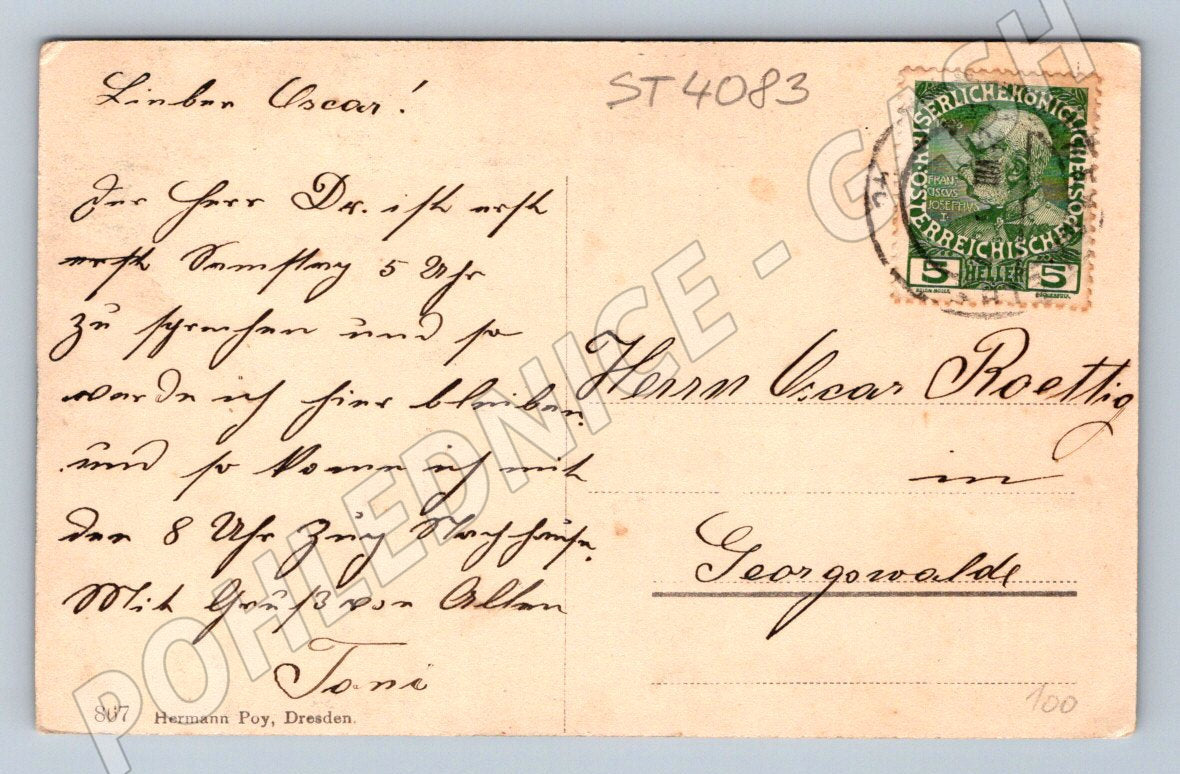 Lieber Oscar!
Der Herr Dr. ist erst
erst Samstag 5 Uhr
zu sprechen und so
werde ich hier bleiben.
und so komme ich mit
den 8 Uhr Zug Nach hause.
Mit Gruß von Allen
Toni
807 Hermann Poy, Dresden.
ST4083
KAISERLICHE KÖNIGLICHE
ÖSTERREICHISCHE POST
FRAN
CISCVS
JOSEPHVS
I.
5 HELLER 5
Herrn Oscar Roettig
in
Georgswalde
100
POHLEDNICE - G